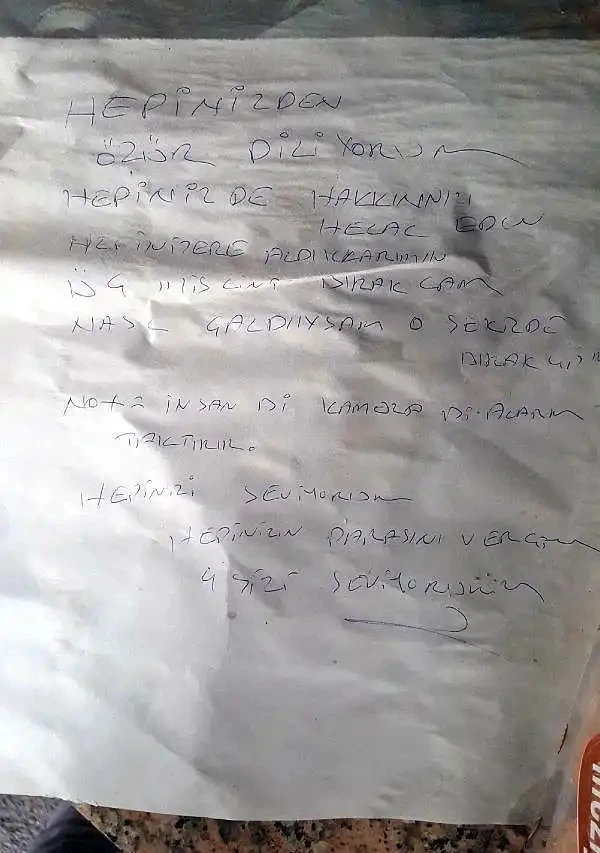 HEPİNİZDEN
ÖZÜR DİLİYORUM
HEPİNİZDE HAKKINIZI
HELAL EDİN
HEPİNİZERE ALDIKKARIMIN
BIRAKCAM
NASL ÇALDIIYSAM O ŞEKİLDE
NOT: İNSAN Bİ KAMERA Bİ ALARM
TAKTIRIR.
HEPİNİZİ SEVİYORUM
HEPİNİZİN PARASINI VERCEM
SİZİ SEVİYORUM